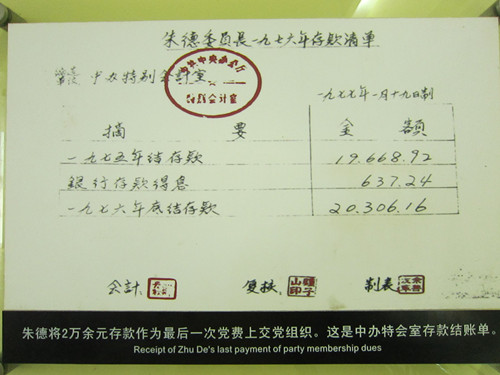 朱德委员长一九七六年存款清单
中办特别会计室
中共中央办公厅
特别会计室
一九七七年一月十九日制
摘 要 金 额
一九七五年结存款 19.668.92
銀行存款得息 637.24
一九七六年底结存款 20.306.16
会计 复核 制表
朱德将2万余元存款作为最后一次党费上交党组织。这是中办特会室存款结账单。
Receipt of Zhu De's last payment of party membership dues